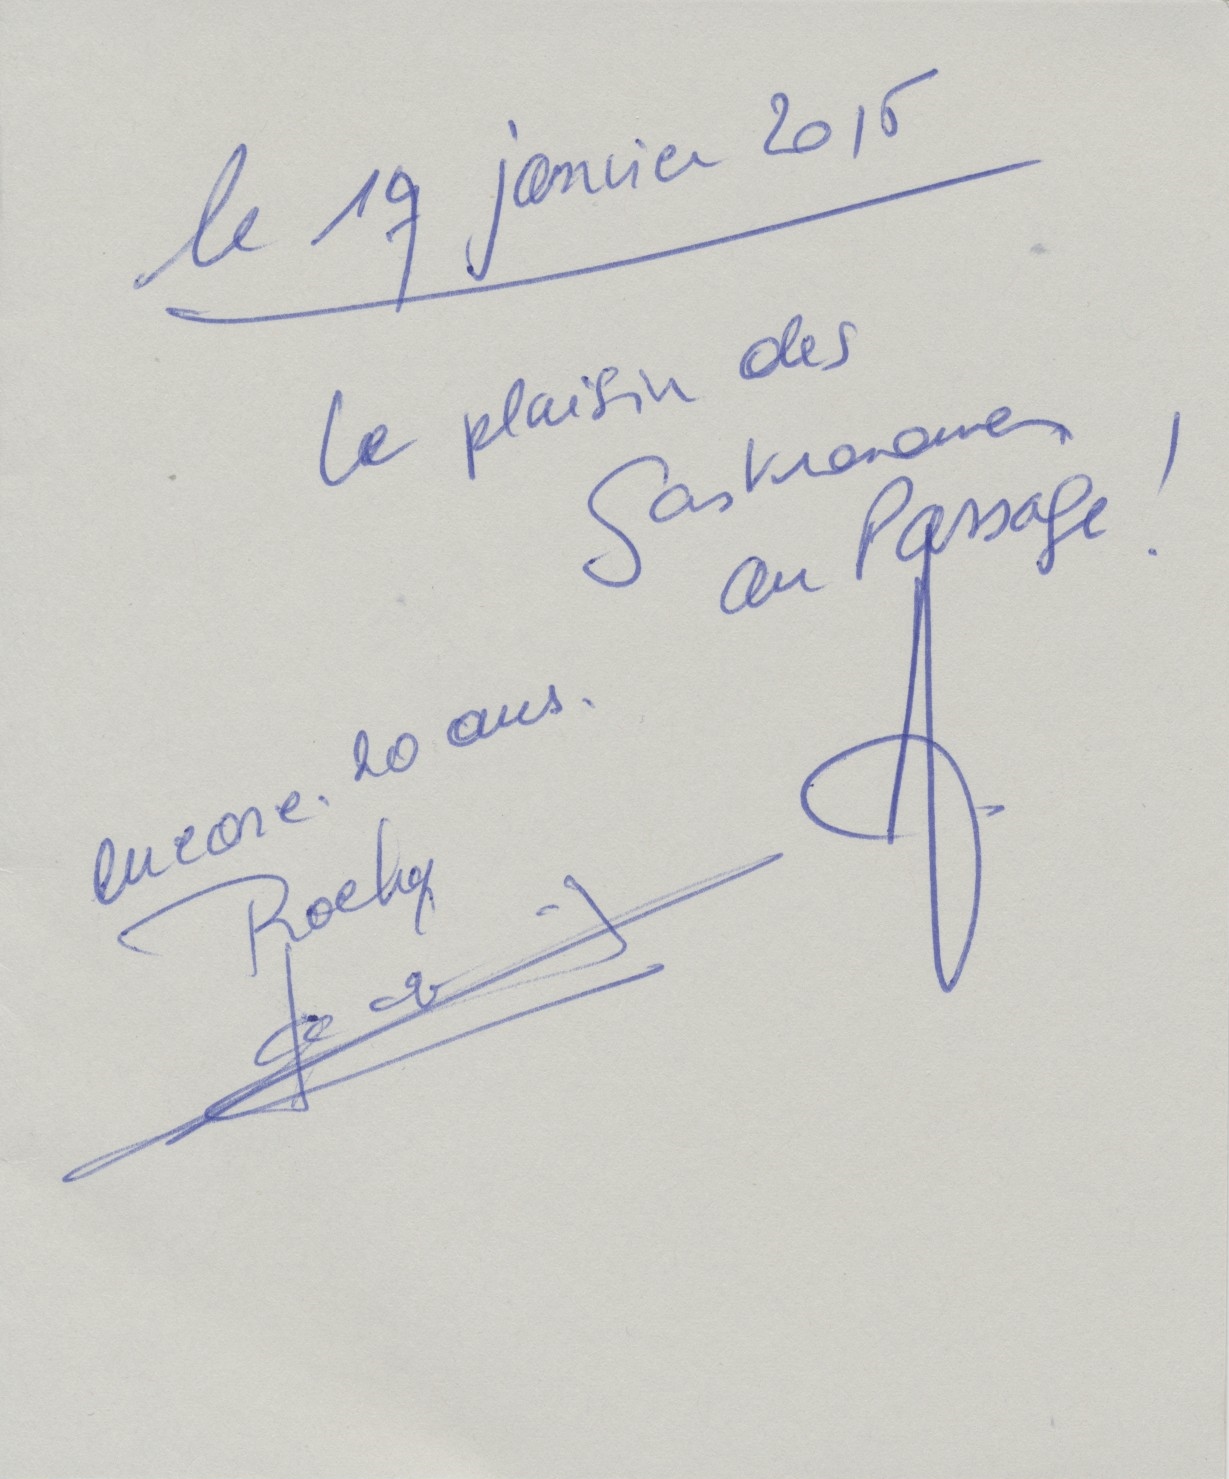 le 19 janvier 2015
Le plaisir des
Gastronomes
au Passage !
encore. 20 ans.
Rocky